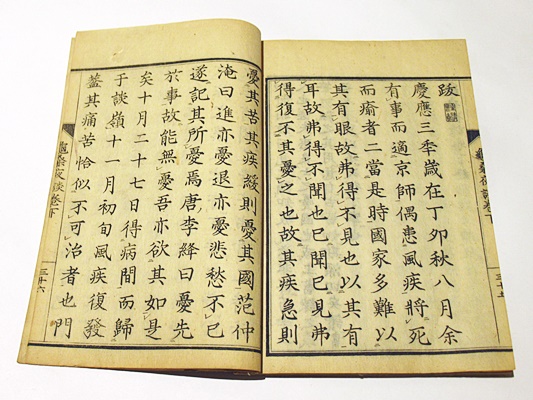 跋
慶應三季歲在丁卯秋八月余
有事而適京師偶患風疾將死
而瘉者二當是時國家多難以
其有眼故弗得不見也以其有
耳故弗得不聞也已聞已見弗
得復不其憂之也故其疾急則
憂其苦其疾緩則憂其國范仲
淹曰進亦憂退亦憂悲愁不已
遂記其所憂焉唐李絳曰憂先
於事故能無憂吾亦欲其如是
矣十月二十七日得病間而歸
于談嶺十一月初旬風疾復發
蓋其痛苦恰似不可治者也門
三十六